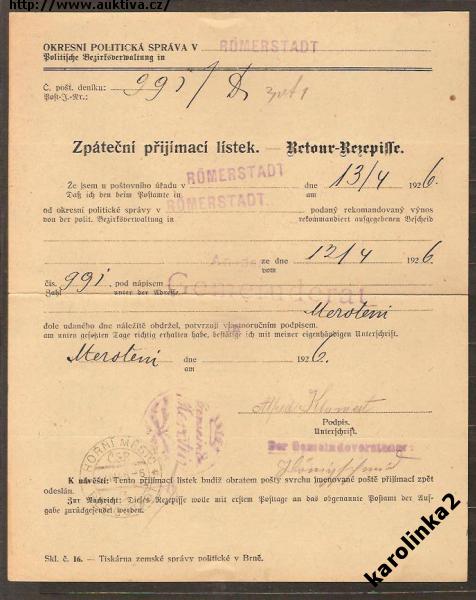 http://www.auktiva.cz/
OKRESNÍ POLITICKÁ SPRÁVA V RÖMERSTADT
Politische Bezirksverwaltung in
Č. pošt. deníku: 991/D
Post-J.-Nr.:
Zpáteční přijímací lístek. — Retour-Rezepisse.
Že jsem u poštovního úřadu v RÖMERSTADT dne 13/4 1926
Daß ich den beim Postamte in am
od okresní politické správy v RÖMERSTADT. podaný rekomandovaný výnos
von der polit. Bezirksverwaltung in rekommandiert aufgegebenen Bescheid
An den ze dne 12/4 1926
vom
čís. 991. pod nápisem Gemeinderat
Zahl unter der Adresse
Merotein
dole udaného dne náležitě obdržel, potvrzuji vlastnoručním podpisem.
am unten gesetzten Tage richtig erhalten habe, bestätige ich mit meiner eigenhändigen Unterschrift.
Merotein dne 1926.
am
Podpis.
Unterschrift.
Der Gemeindevorsteher:
HORNÍ MĚSTO
K návěští: Tento přijímací lístek budiž obratem pošty svrchu jmenované poště přijímací zpět
odeslán.
Zur Nachricht: Dieses Rezepisse wolle mit erstem Posttage an das obgenannte Postamt der Auf-
gabe zurückgesendet werden.
Skl. č. 16. — Tiskárna zemské správy politické v Brně.
karolinka2